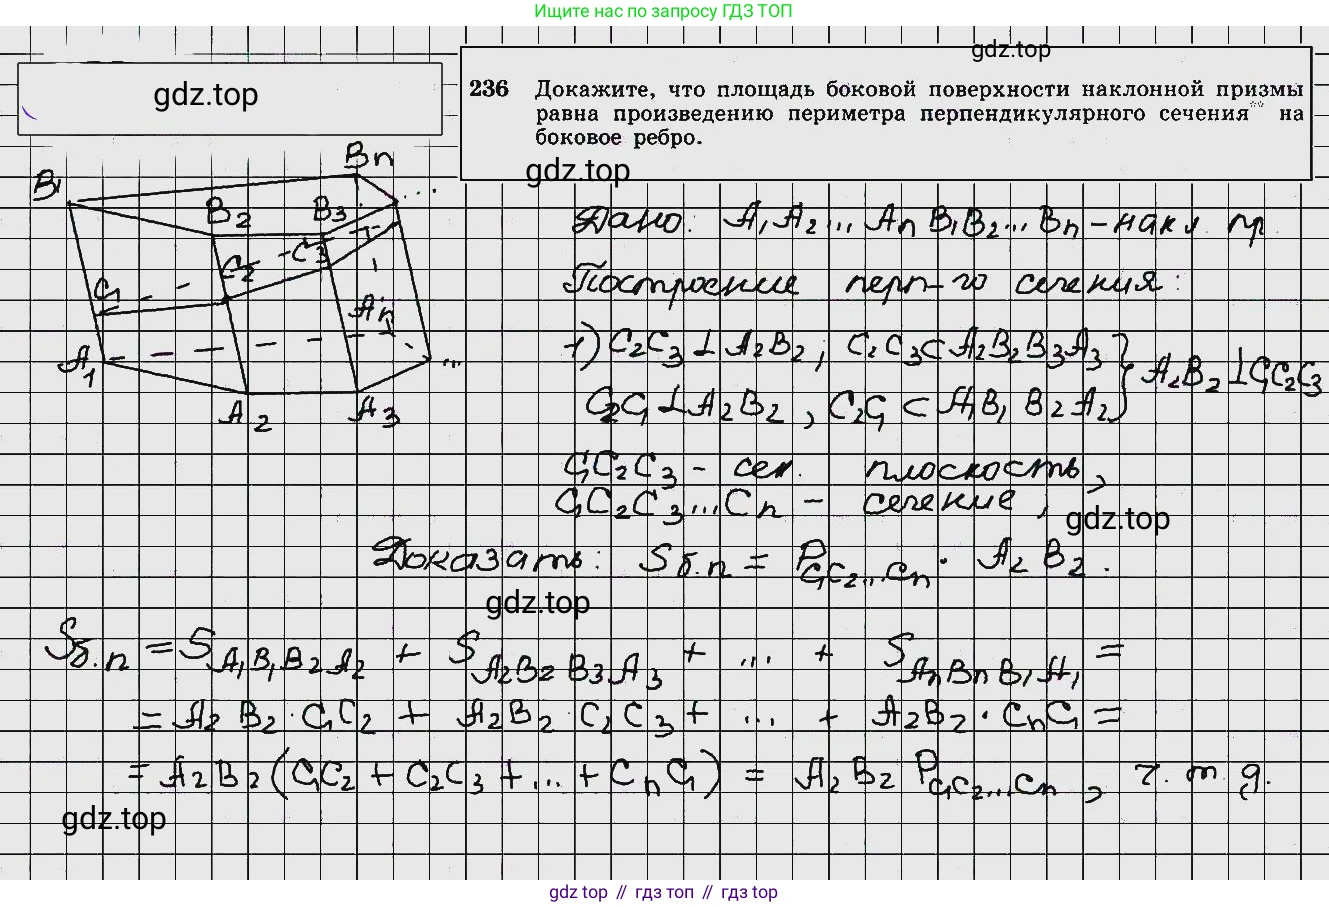 Ищите нас по запросу ГДЗ ТОП
gdz.top
gdz.top
236 Докажите, что площадь боковой поверхности наклонной призмы
равна произведению периметра перпендикулярного сечения** на
боковое ребро.
gdz.top
B₁ B₂ B₃ Bₙ ...
C₁ C₂ C₃
A₁ A₂ A₃ Aₙ ...
Дано: A₁A₂...AₙB₁B₂...Bₙ – накл. пр.
Построение перп-го сечения:
1) C₂C₃ ⊥ A₂B₂; C₂C₃ ⊂ A₂B₂B₃A₃ } A₂B₂ ⊥ C₁C₂C₃
C₂C₁ ⊥ A₂B₂, C₂C₁ ⊂ A₁B₁B₂A₂
C₁C₂C₃ – сек. плоскость,
C₁C₂C₃...Cₙ – сечение,
gdz.top
Доказать: Sб.п = P C₁C₂...Cₙ · A₂B₂.
gdz.top
Sб.п = S A₁B₁B₂A₂ + S A₂B₂B₃A₃ + ... + S AₙBₙB₁A₁ =
= A₂B₂ · C₁C₂ + A₂B₂ · C₂C₃ + ... + A₂B₂ · CₙC₁ =
= A₂B₂ (C₁C₂ + C₂C₃ + ... + CₙC₁) = A₂B₂ P C₁C₂...Cₙ, ч.т.д.
gdz.top
gdz top // гдз топ // gdz top